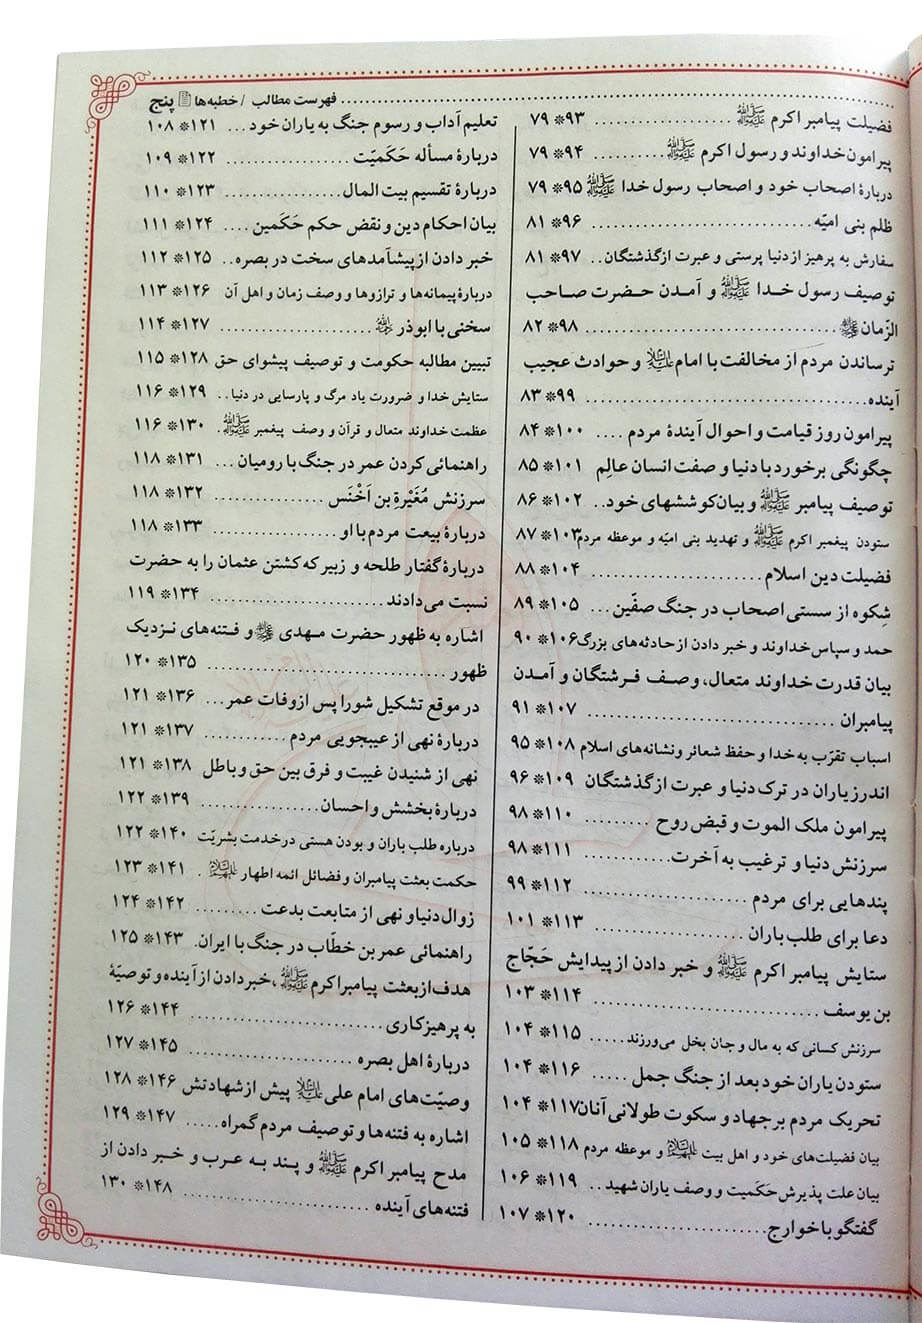 فهرست مطالب / خطبه‌ها پنج
فضیلت پیامبر اکرم ﷺ .................. ۹۳* ۷۹
پیرامون خداوند و رسول اکرم ﷺ.......... ۹۴* ۷۹
دربارهٔ اصحاب خود و اصحاب رسول خدا ﷺ ۹۵* ۷۹
ظلم بنی امیّه .......................... ۹۶* ۸۱
سفارش به پرهیز از دنیا پرستی و عبرت از گذشتگان.. ۹۷* ۸۱
توصیف رسول خدا ﷺ و آمدن حضرت صاحب
الزّمان .......................... ۹۸* ۸۲
ترساندن مردم از مخالفت با امام و حوادث عجیب
آینده.......................... ۹۹* ۸۳
پیرامون روز قیامت و احوال آیندهٔ مردم .... ۱۰۰* ۸۴
چگونگی برخورد با دنیا و صفت انسان عالِم ۱۰۱* ۸۵
توصیف پیامبر ﷺ و بیان کوششهای خود.. ۱۰۲* ۸۶
ستودن پیغمبر اکرم ﷺ و تهدید بنی امیّه و موعظه مردم ۱۰۳* ۸۷
فضیلت دین اسلام .................. ۱۰۴* ۸۸
شِکوه از سستی اصحاب در جنگ صفّین... ۱۰۵* ۸۹
حمد و سپاس خداوند و خبر دادن از حادثه‌های بزرگ ۱۰۶* ۹۰
بیان قدرت خداوند متعال، وصف فرشتگان و آمدن
پیامبران .......................... ۱۰۷* ۹۱
اسباب تقرّب به خدا و حفظ شعائر ونشانه‌های اسلام ۱۰۸* ۹۵
اندرز یاران در ترک دنیا و عبرت از گذشتگان ۱۰۹* ۹۶
پیرامون ملک الموت و قبض روح ......... ۱۱۰* ۹۸
سرزنش دنیا و ترغیب به آخرت............ ۱۱۱* ۹۸
پندهایی برای مردم .................. ۱۱۲* ۹۹
دعا برای طلب باران .................. ۱۱۳* ۱۰۱
ستایش پیامبر اکرم ﷺ و خبر دادن از پیدایش حَجّاج
بن یوسف .......................... ۱۱۴* ۱۰۳
سرزنش کسانی که به مال و جان بخل می‌ورزند...... ۱۱۵* ۱۰۴
ستودن یاران خود بعد از جنگ جمل ..... ۱۱۶* ۱۰۴
تحریک مردم بر جهاد و سکوت طولانی آنان ۱۱۷* ۱۰۴
بیان فضیلت‌های خود و اهل بیت و موعظه مردم ۱۱۸* ۱۰۵
بیان علت پذیرش حَکَمیت و وصف یاران شهید.. ۱۱۹* ۱۰۶
گفتگو با خوارج.................. ۱۲۰* ۱۰۷
تعلیم آداب و رسوم جنگ به یاران خود ... ۱۲۱* ۱۰۸
دربارهٔ مسأله حَکَمیّت .................. ۱۲۲* ۱۰۹
دربارهٔ تقسیم بیت المال .................. ۱۲۳* ۱۱۰
بیان احکام دین و نقض حکم حَکَمین .... ۱۲۴* ۱۱۱
خبر دادن از پیشآمدهای سخت در بصره.. ۱۲۵* ۱۱۲
دربارهٔ پیمانه‌ها و ترازوها و وصف زمان و اهل آن ۱۲۶* ۱۱۳
سخنی با ابوذر .................. ۱۲۷* ۱۱۴
تبیین مطالبه حکومت و توصیف پیشوای حق ۱۲۸* ۱۱۵
ستایش خدا و ضرورت یاد مرگ و پارسایی در دنیا.. ۱۲۹* ۱۱۶
عظمت خداوند متعال و قرآن و وصف پیغمبر ﷺ. ۱۳۰* ۱۱۶
راهنمائی کردن عمر در جنگ با رومیان ... ۱۳۱* ۱۱۸
سرزنش مُغَیْرَةِ بن اَخْنَس .............. ۱۳۲* ۱۱۸
دربارهٔ بیعت مردم با او .................. ۱۳۳* ۱۱۸
دربارهٔ گفتار طلحه و زبیر که کشتن عثمان را به حضرت
نسبت می‌دادند .................. ۱۳۴* ۱۱۹
اشاره به ظهور حضرت مهدی و فتنه‌های نزدیک
ظهور .......................... ۱۳۵* ۱۲۰
در موقع تشکیل شورا پس از وفات عمر... ۱۳۶* ۱۲۱
دربارهٔ نهی از عیبجویی مردم ............ ۱۳۷* ۱۲۱
نهی از شنیدن غیبت و فرق بین حق و باطل ۱۳۸* ۱۲۱
دربارهٔ بخشش و احسان.................. ۱۳۹* ۱۲۲
درباره طلب باران و بودن هستی در خدمت بشریّت ۱۴۰* ۱۲۲
حکمت بعثت پیامبران و فضائل ائمه اطهار . ۱۴۱* ۱۲۳
زوال دنیا و نهی از متابعت بدعت ......... ۱۴۲* ۱۲۴
راهنمائی عمر بن خطّاب در جنگ با ایران. ۱۴۳* ۱۲۵
هدف از بعثت پیامبر اکرم ﷺ، خبر دادن از آینده و توصیّهٔ
به پرهیزکاری .................. ۱۴۴* ۱۲۶
دربارهٔ اهل بصره .................. ۱۴۵* ۱۲۷
وصیّت‌های امام علی پیش از شهادتش ۱۴۶* ۱۲۸
اشاره به فتنه‌ها و توصیف مردم گمراه..... ۱۴۷* ۱۲۹
مدح پیامبر اکرم ﷺ و پند به عرب و خبر دادن از
فتنه‌های آینده .................. ۱۴۸* ۱۳۰